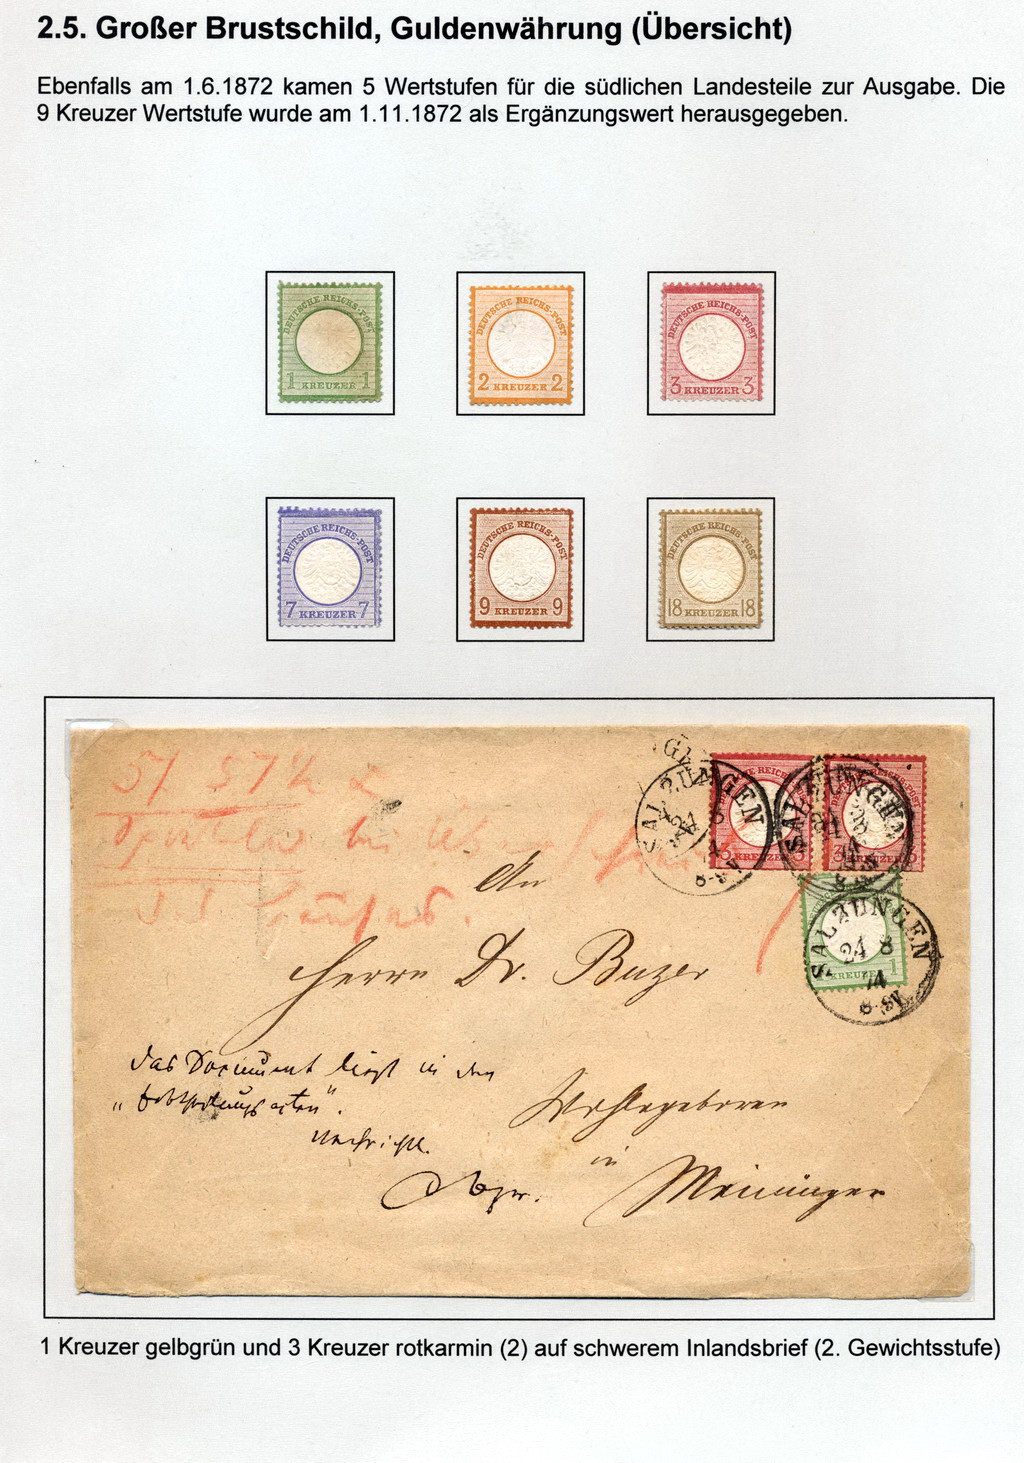 2.5. Großer Brustschild, Guldenwährung (Übersicht)
Ebenfalls am 1.6.1872 kamen 5 Wertstufen für die südlichen Landesteile zur Ausgabe. Die
9 Kreuzer Wertstufe wurde am 1.11.1872 als Ergänzungswert herausgegeben.
DEUTSCHE REICHS-POST
1 KREUZER 1
DEUTSCHE REICHS-POST
2 KREUZER 2
DEUTSCHE REICHS-POST
3 KREUZER 3
DEUTSCHE REICHS-POST
7 KREUZER 7
DEUTSCHE REICHS-POST
9 KREUZER 9
DEUTSCHE REICHS-POST
18 KREUZER 18
SALZUNGEN
SALZUNGEN
SALZUNGEN
24 8
74
KREUZER 1
An
Herrn Dr. Buzer
das Document liegt in den
Wohlgeboren
in
Meiningen
1 Kreuzer gelbgrün und 3 Kreuzer rotkarmin (2) auf schwerem Inlandsbrief (2. Gewichtsstufe)